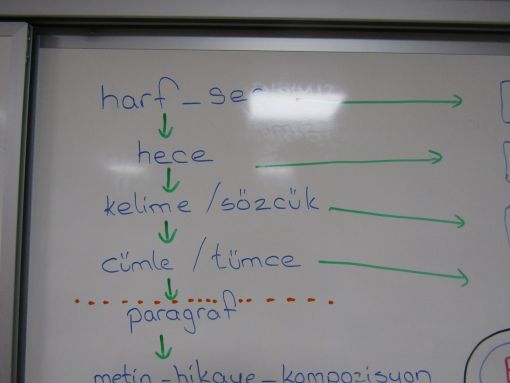 harf - ses
hece
kelime / sözcük
cümle / tümce
paragraf
metin - hikaye - kompozisyon